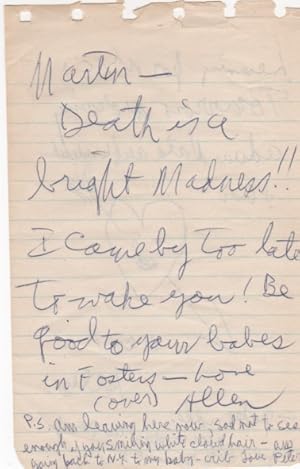 Martin —
Death is a
bright Madness!!
I Came by Too late
To wake you! Be
good to your babes
in Fosters — Love
(over) Allen
P.S. Am leaving here now sad not to see
enough of your smiling white cloud hair — am
going back to N.Y. to my baby — write Love Peter